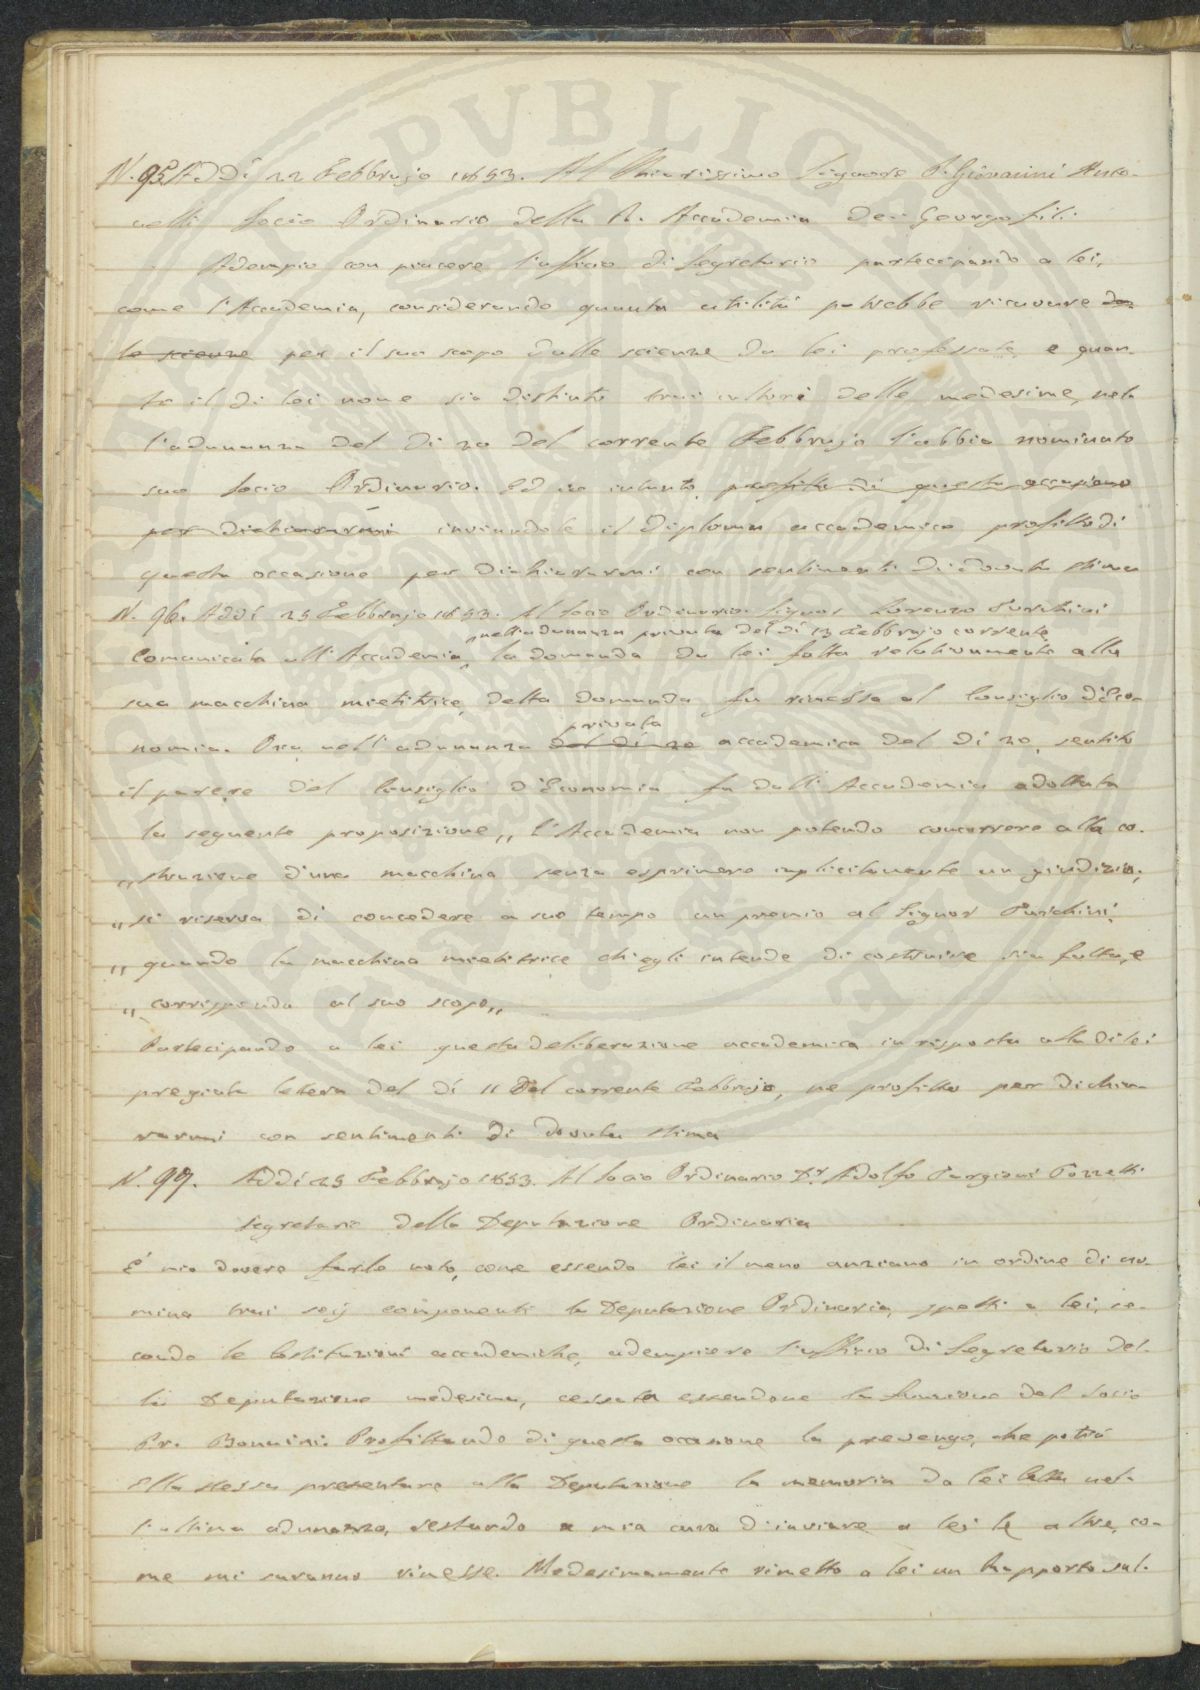 N. 95. Addì 22 Febbrajo 1853. Al Chiarissimo Signore P. Giovanni Anto-
nelli Socio Ordinario della R. Accademia dei Georgofili
Adempio con piacere l'officio di Segretario partecipando a lei,
come l'Accademia, considerando quanta utilità potrebbe ricavare da-
le scienze per il suo scopo dalle scienze da lei professate, e quan-
to il di lei nome sia distinto trai cultori delle medesime, nel-
l'adunanza del dì 20 del corrente Febbrajo l'abbia nominato
suo Socio Ordinario. Ed io intanto, profitto di questa occasione
per dichiararmi inviandole il diploma accademico profitto di
questa occasione per dichiararmi con sentimenti di dovuta stima
N. 96. Addì 25 Febbrajo 1853. Al Socio Ordinario Signor Lorenzo Turchini
nell'adunanza privata del dì 13 Febbrajo corrente
Comunicata all'Accademia, la domanda da lei fatta relativamente alla
sua macchina mietitrice, detta domanda fu rimessa al Consiglio d'Eco-
privata
nomia. Ora, nell'adunanza del dì 20 accademica del dì 20, sentito
il parere del Consiglio d'Economia fu dall'Accademia adottata
la seguente proposizione „ l'Accademia non potendo concorrere alla co-
„ struzione d'una macchina senza esprimere implicitamente un giudizio,
„ si riserva di concedere a suo tempo un premio al Signor Turchini,
„ quando la macchina mietitrice ch'egli intende di costruire sia fatta, e
„ corrisponda al suo scopo „
Partecipando a lei questa deliberazione accademica in risposta alla di lei
pregiata lettera del dì 11 del corrente Febbrajo, ne profitto per dichia-
rarmi con sentimenti di dovuta stima
N. 97. Addì 25 Febbrajo 1853. Al Socio Ordinario Dr. Adolfo Targioni Tozzetti
Segretario della Deputazione Ordinaria
È mio dovere farle noto, come essendo lei il meno anziano in ordine di no-
mina trai socj componenti la Deputazione Ordinaria, spetti a lei, se-
condo le Costituzioni accademiche, adempiere l'ufficio di Segretario del-
la Deputazione medesima, cessata essendone la funzione del Socio
Pr. Bonaini. Profittando di questa occasione la prevengo, che potrà
Ella stessa presentare alla Deputazione la memoria da lei letta nel-
l'ultima adunanza, restando a mia cura d'inviare a lei le altre, co-
me mi saranno rimesse. Medesimamente rimetto a lei un Rapporto sul-